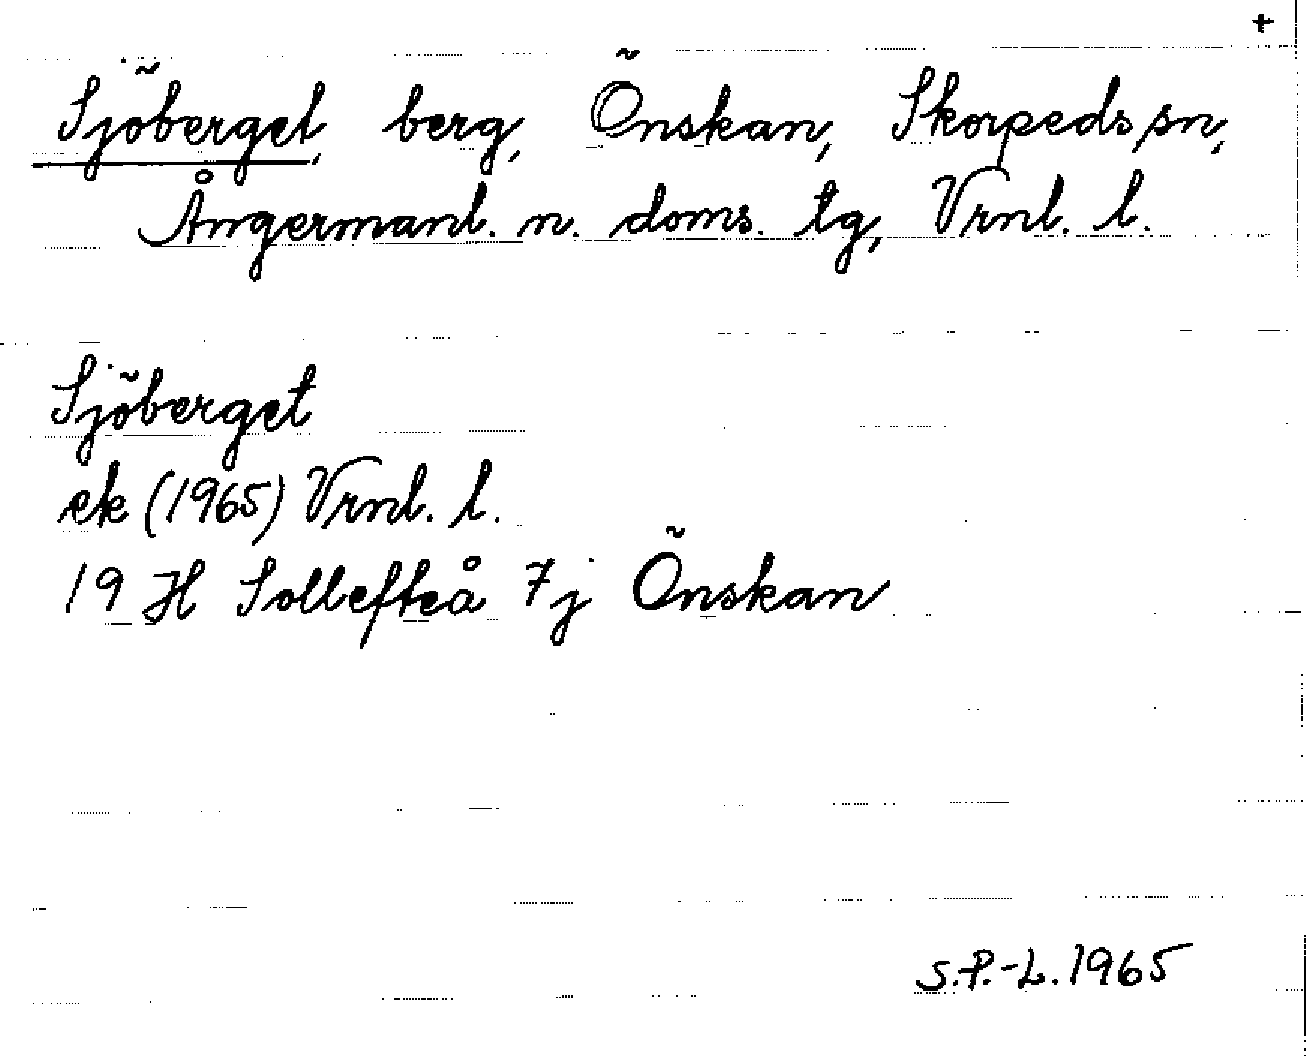 +
Sjöberget, berg, Önskan, Skorpeds sn,
Ångermanl. n. doms. tg, Vrnl. l.
Sjöberget
ek (1965) Vrnl. l.
19 H Sollefteå 7j Önskan
S.P.-L. 1965